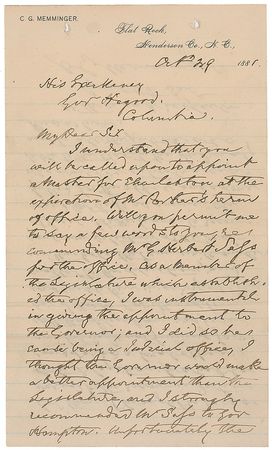 C. G. MEMMINGER.
Flat Rock,
Henderson Co., N. C.,
Oct 29 1881.
His Excellency
Gov Hagood.
Columbia.
My Dear Sir
I understand that you
will be called upon to appoint
a Master for Charleston at the
expiration of Mr term
of office. Will you permit me
to say a few words to you, re-
commending Mr G Herbert Sass
for the office. As a member of
the Legislature which establish-
ed the office, I was instrumental
in giving the appointment to
the Governor; and I did so be-
cause being a Judicial office, I
thought the Governor would make
a better appointment than the
Legislature, and I strongly
recommended Mr Sass to Gov
Hampton. Unfortunately the